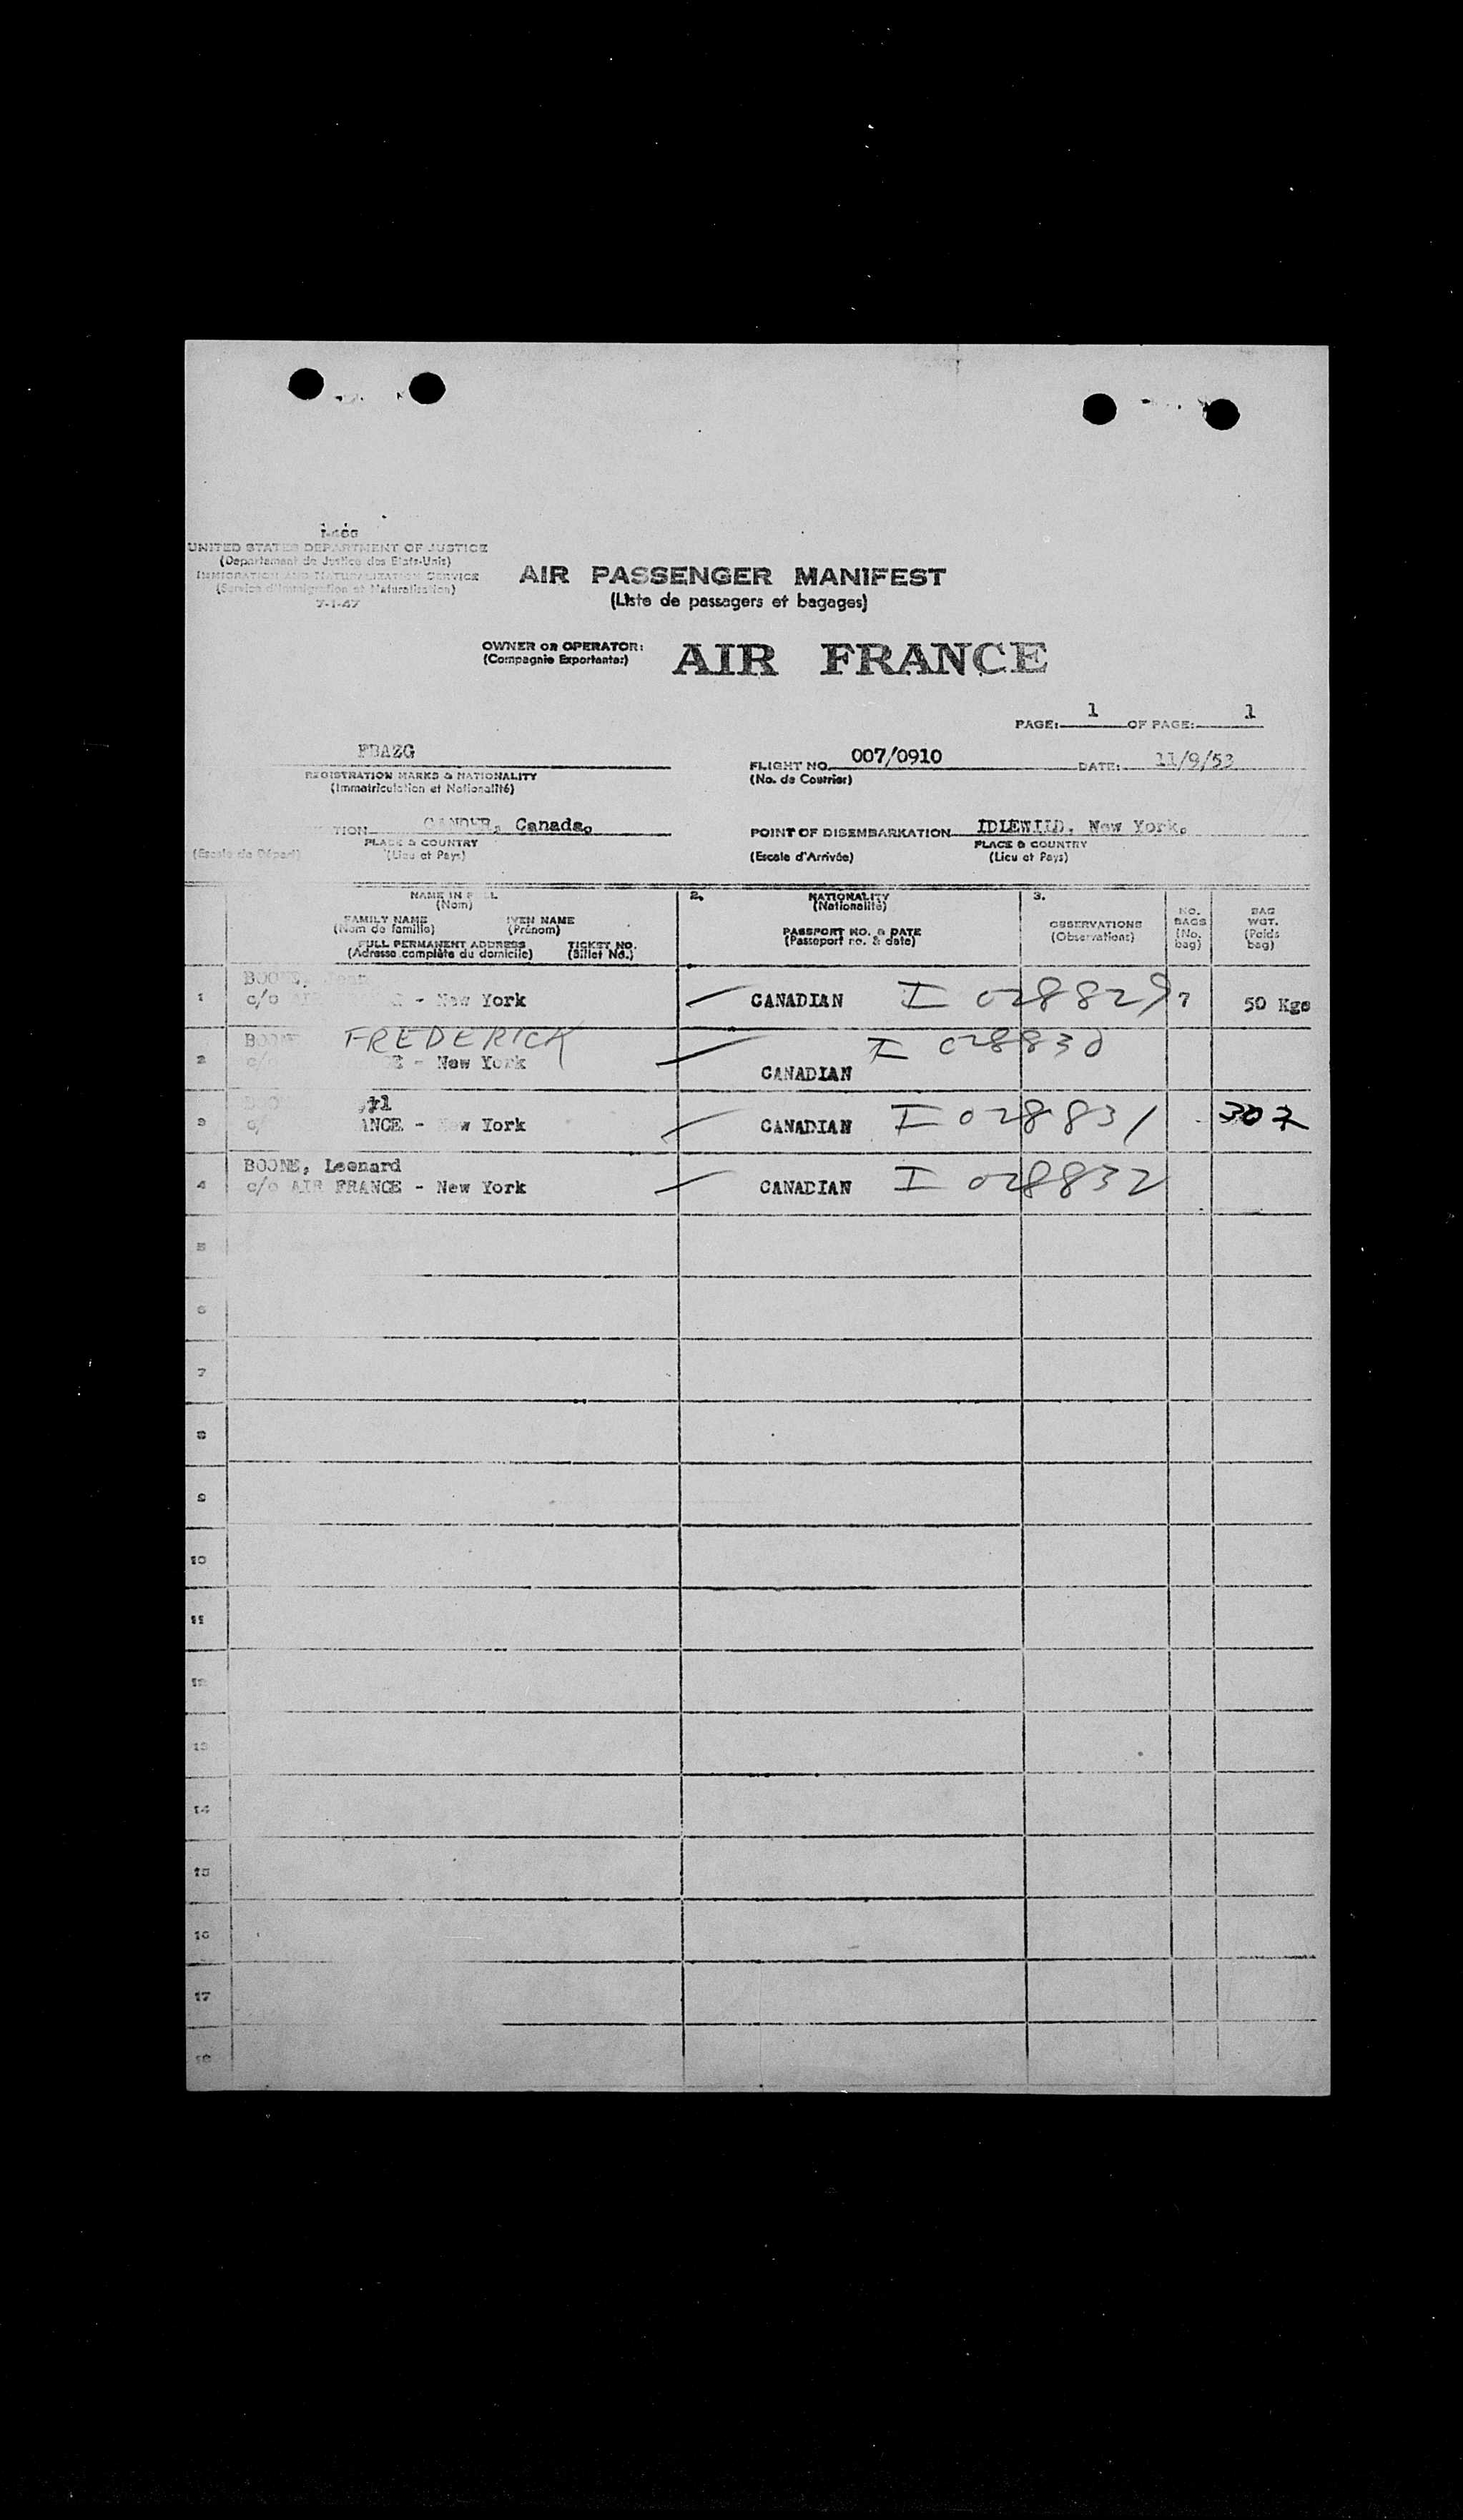 I-466
UNITED STATES DEPARTMENT OF JUSTICE
(Departement de Justice des Etats-Unis)
IMMIGRATION AND NATURALIZATION SERVICE
(Service d'Immigration et Naturalisation)
7-1-47
AIR PASSENGER MANIFEST
(Liste de passagers et bagages)
OWNER OR OPERATOR: AIR FRANCE
(Compagnie Exportante:)
PAGE: 1 OF PAGE: 1
FBAZG
REGISTRATION MARKS & NATIONALITY
(Immatriculation et Nationalité)
FLIGHT NO. 007/0910 DATE: 11/9/53
(No. de Courrier)
TION GANDER, Canada.
PLACE & COUNTRY
(Escale de Départ) (Lieu et Pays)
POINT OF DISEMBARKATION IDLEWILD, New York.
PLACE & COUNTRY
(Escale d'Arrivée) (Lieu et Pays)
NAME IN F LL
(Nom)
FAMILY NAME IVEN NAME
(Nom de famille) (Prénom)
FULL PERMANENT ADDRESS TICKET NO.
(Adresse complète du domicile) (Billet No.)
2. NATIONALITY
(Nationalité)
PASSPORT NO. & DATE
(Passeport no. & date)
3.
OBSERVATIONS
(Observations)
NO.
BAGS
(No.
bag)
BAG
WGT.
(Poids
bag)
BOONE,
1 c/o AIR - New York CANADIAN I 028829 7 50 Kgs
BOONE FREDERICK I 028830
2 c/o CE - New York CANADIAN
3 ANCE - New York CANADIAN I 028831 307
BOONE, Leonard
4 c/o AIR FRANCE - New York CANADIAN I 028832
5
6
7
8
9
10
11
12
13
14
15
16
17
18